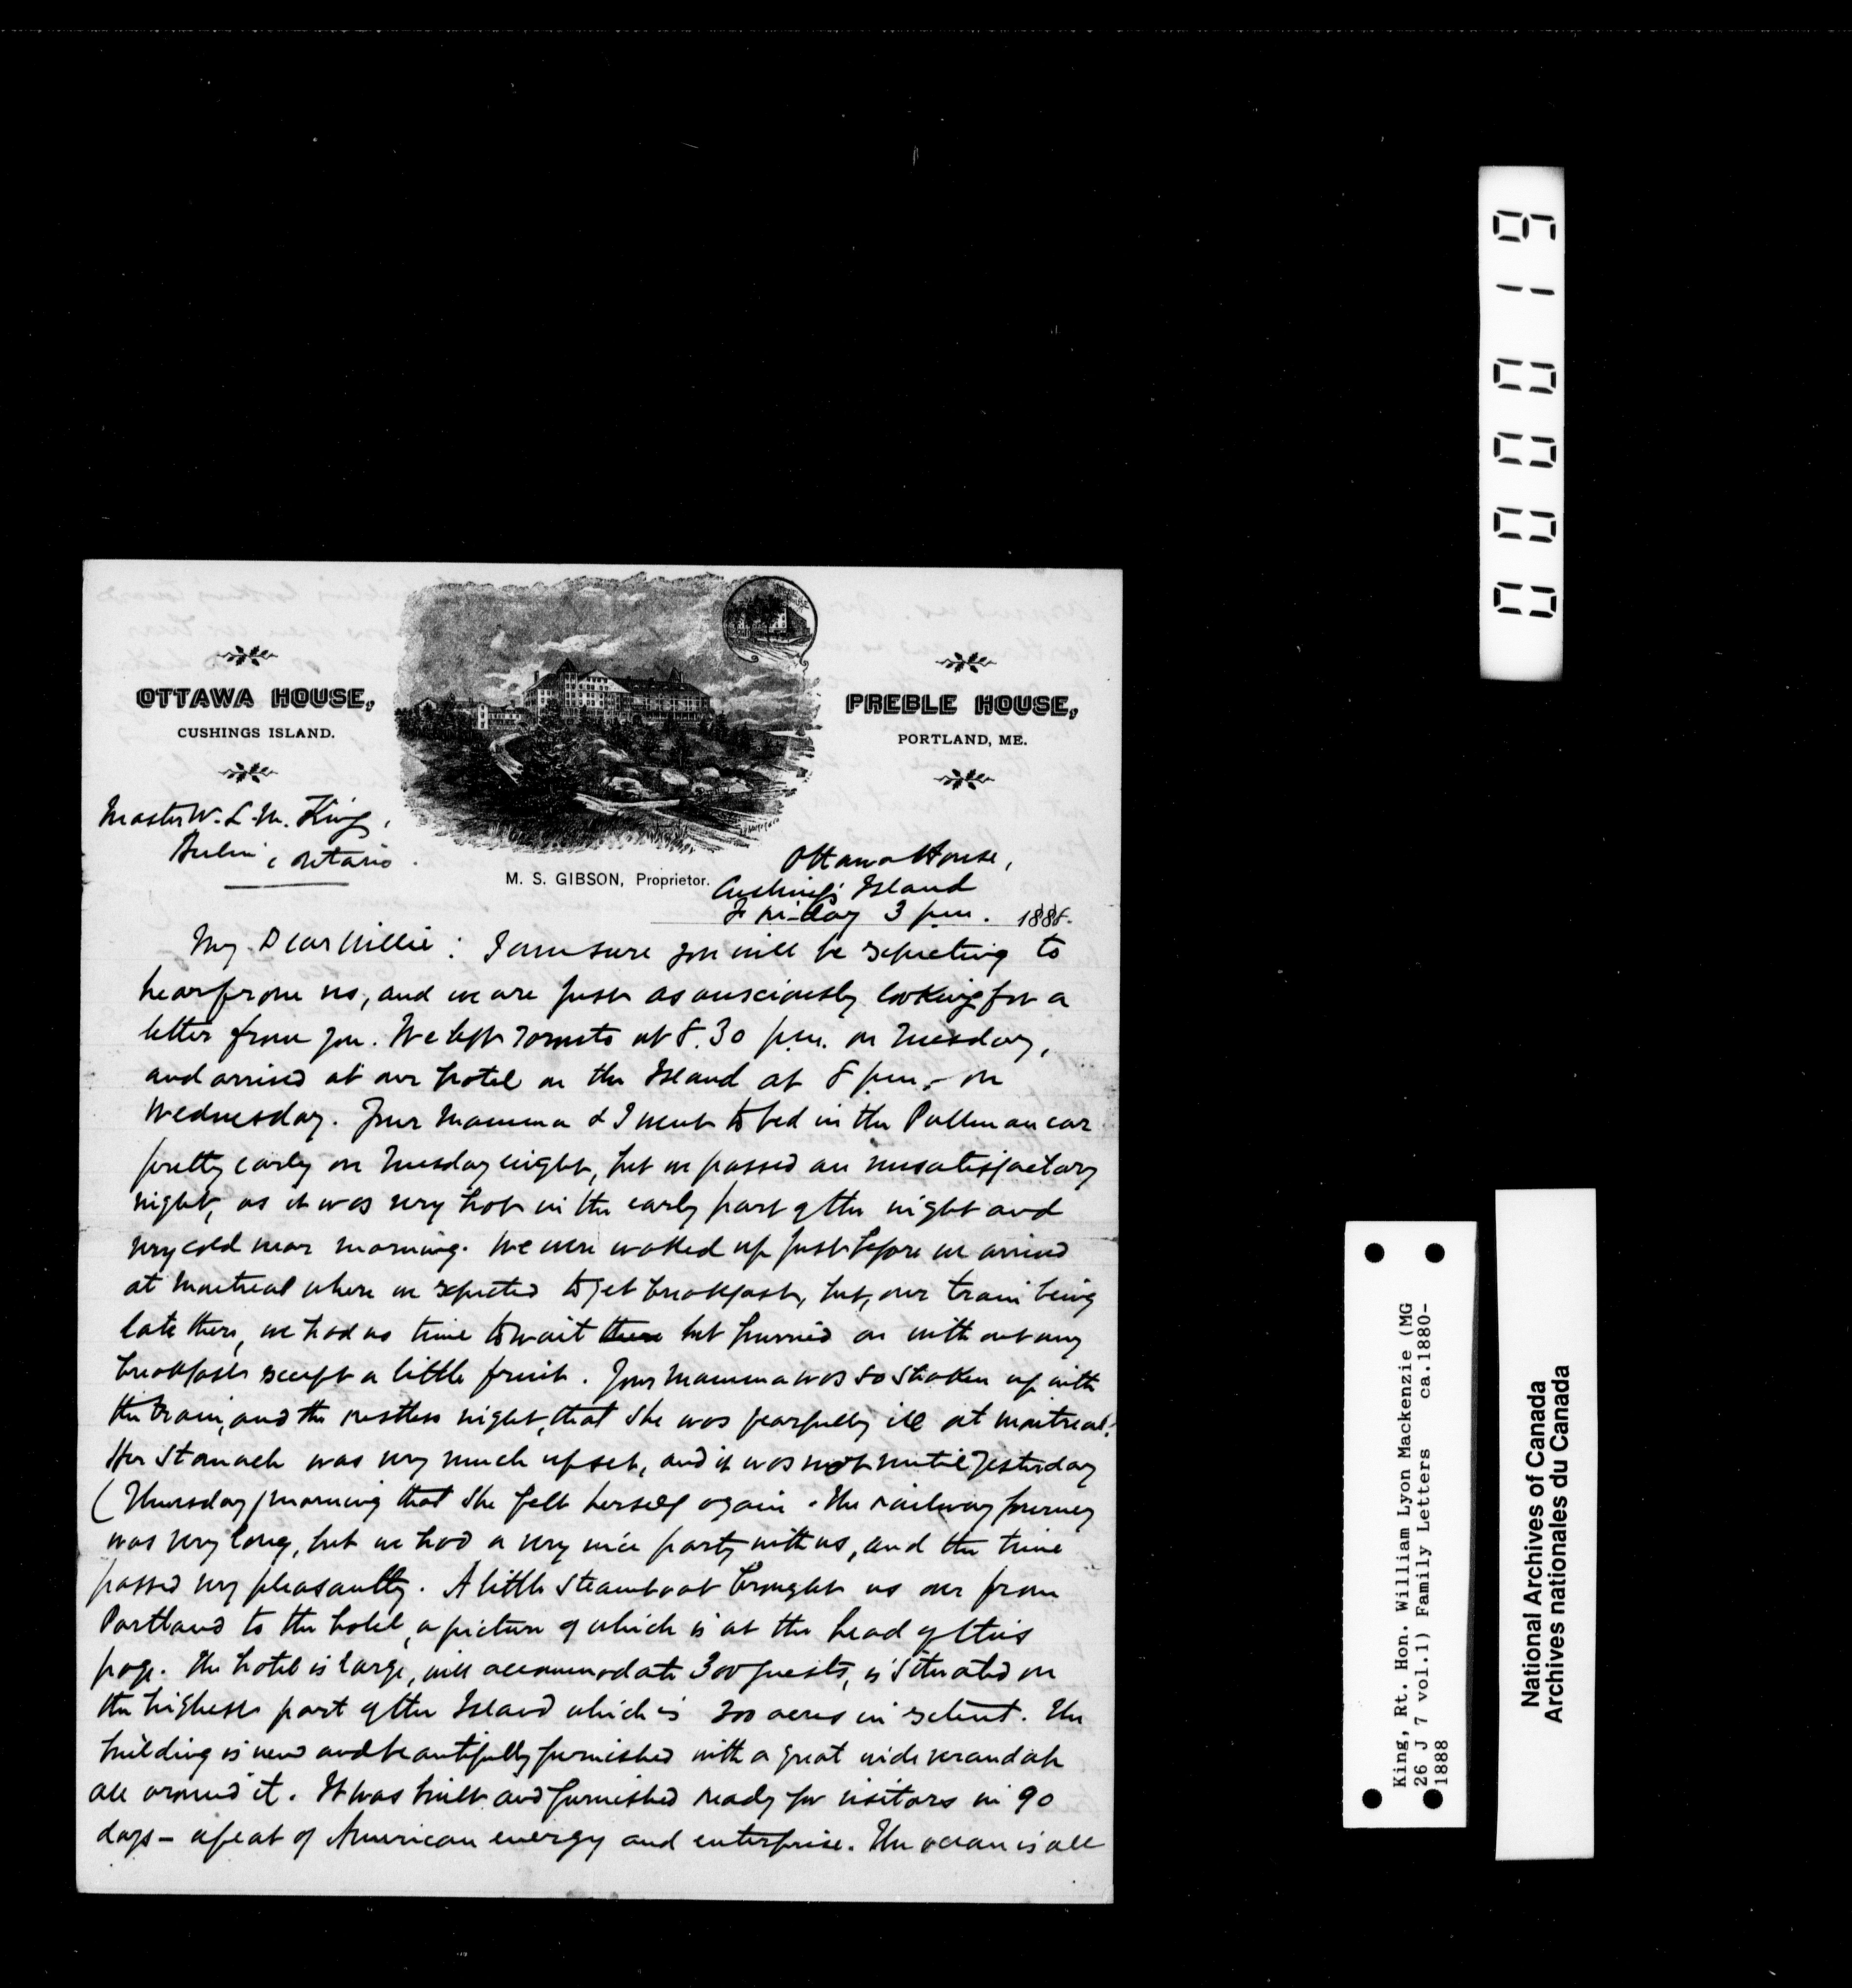 OTTAWA HOUSE,
CUSHINGS ISLAND.
PREBLE HOUSE,
PORTLAND, ME.
Master W. L. M. King,
Berlin, Ontario.
M. S. GIBSON, Proprietor.
Ottawa House,
Cushing's Island
Friday 3 p.m. 1888.
My Dear Willie: I am sure you will be expecting to
hear from us, and we are just as anxiously looking for a
letter from you. We left Toronto at 8.30 p.m. on Tuesday,
and arrived at our hotel on the Island at 8 p.m. on
Wednesday. Your Mamma & I went to bed in the Pullman car
pretty early on Tuesday night, but we passed an unsatisfactory
night, as it was very hot in the early part of the night and
very cold near morning. We were waked up just before we arrived
at Montreal where we expected to get breakfast, but, our train being
late there, we had no time to wait there but hurried on without any
breakfast except a little fruit. Your Mamma was so shaken up with
the train, and the restless night, that she was fearfully ill at Montreal.
Her stomach was very much upset, and it was not until yesterday
(Thursday) morning that she felt herself again. The railway journey
was very long, but we had a very nice party with us, and the time
passed very pleasantly. A little steamboat brought us over from
Portland to the hotel, a picture of which is at the head of this
page. The hotel is large, will accommodate 300 guests, is situated on
the highest part of the Island which is 300 acres in extent. The
building is new and beautifully furnished with a great wide verandah
all around it. It was built and furnished ready for visitors in 90
days – a feat of American energy and enterprise. The ocean is all
000019
King, Rt. Hon. William Lyon Mackenzie (MG
26 J 7 vol.1) Family Letters ca.1880-
1888
National Archives of Canada
Archives nationales du Canada